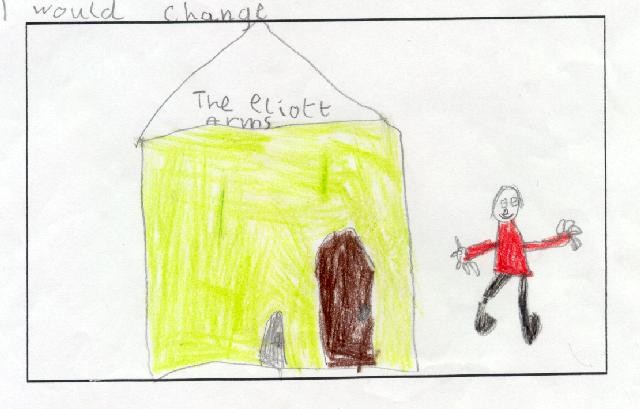 I would change
The eliott
arms